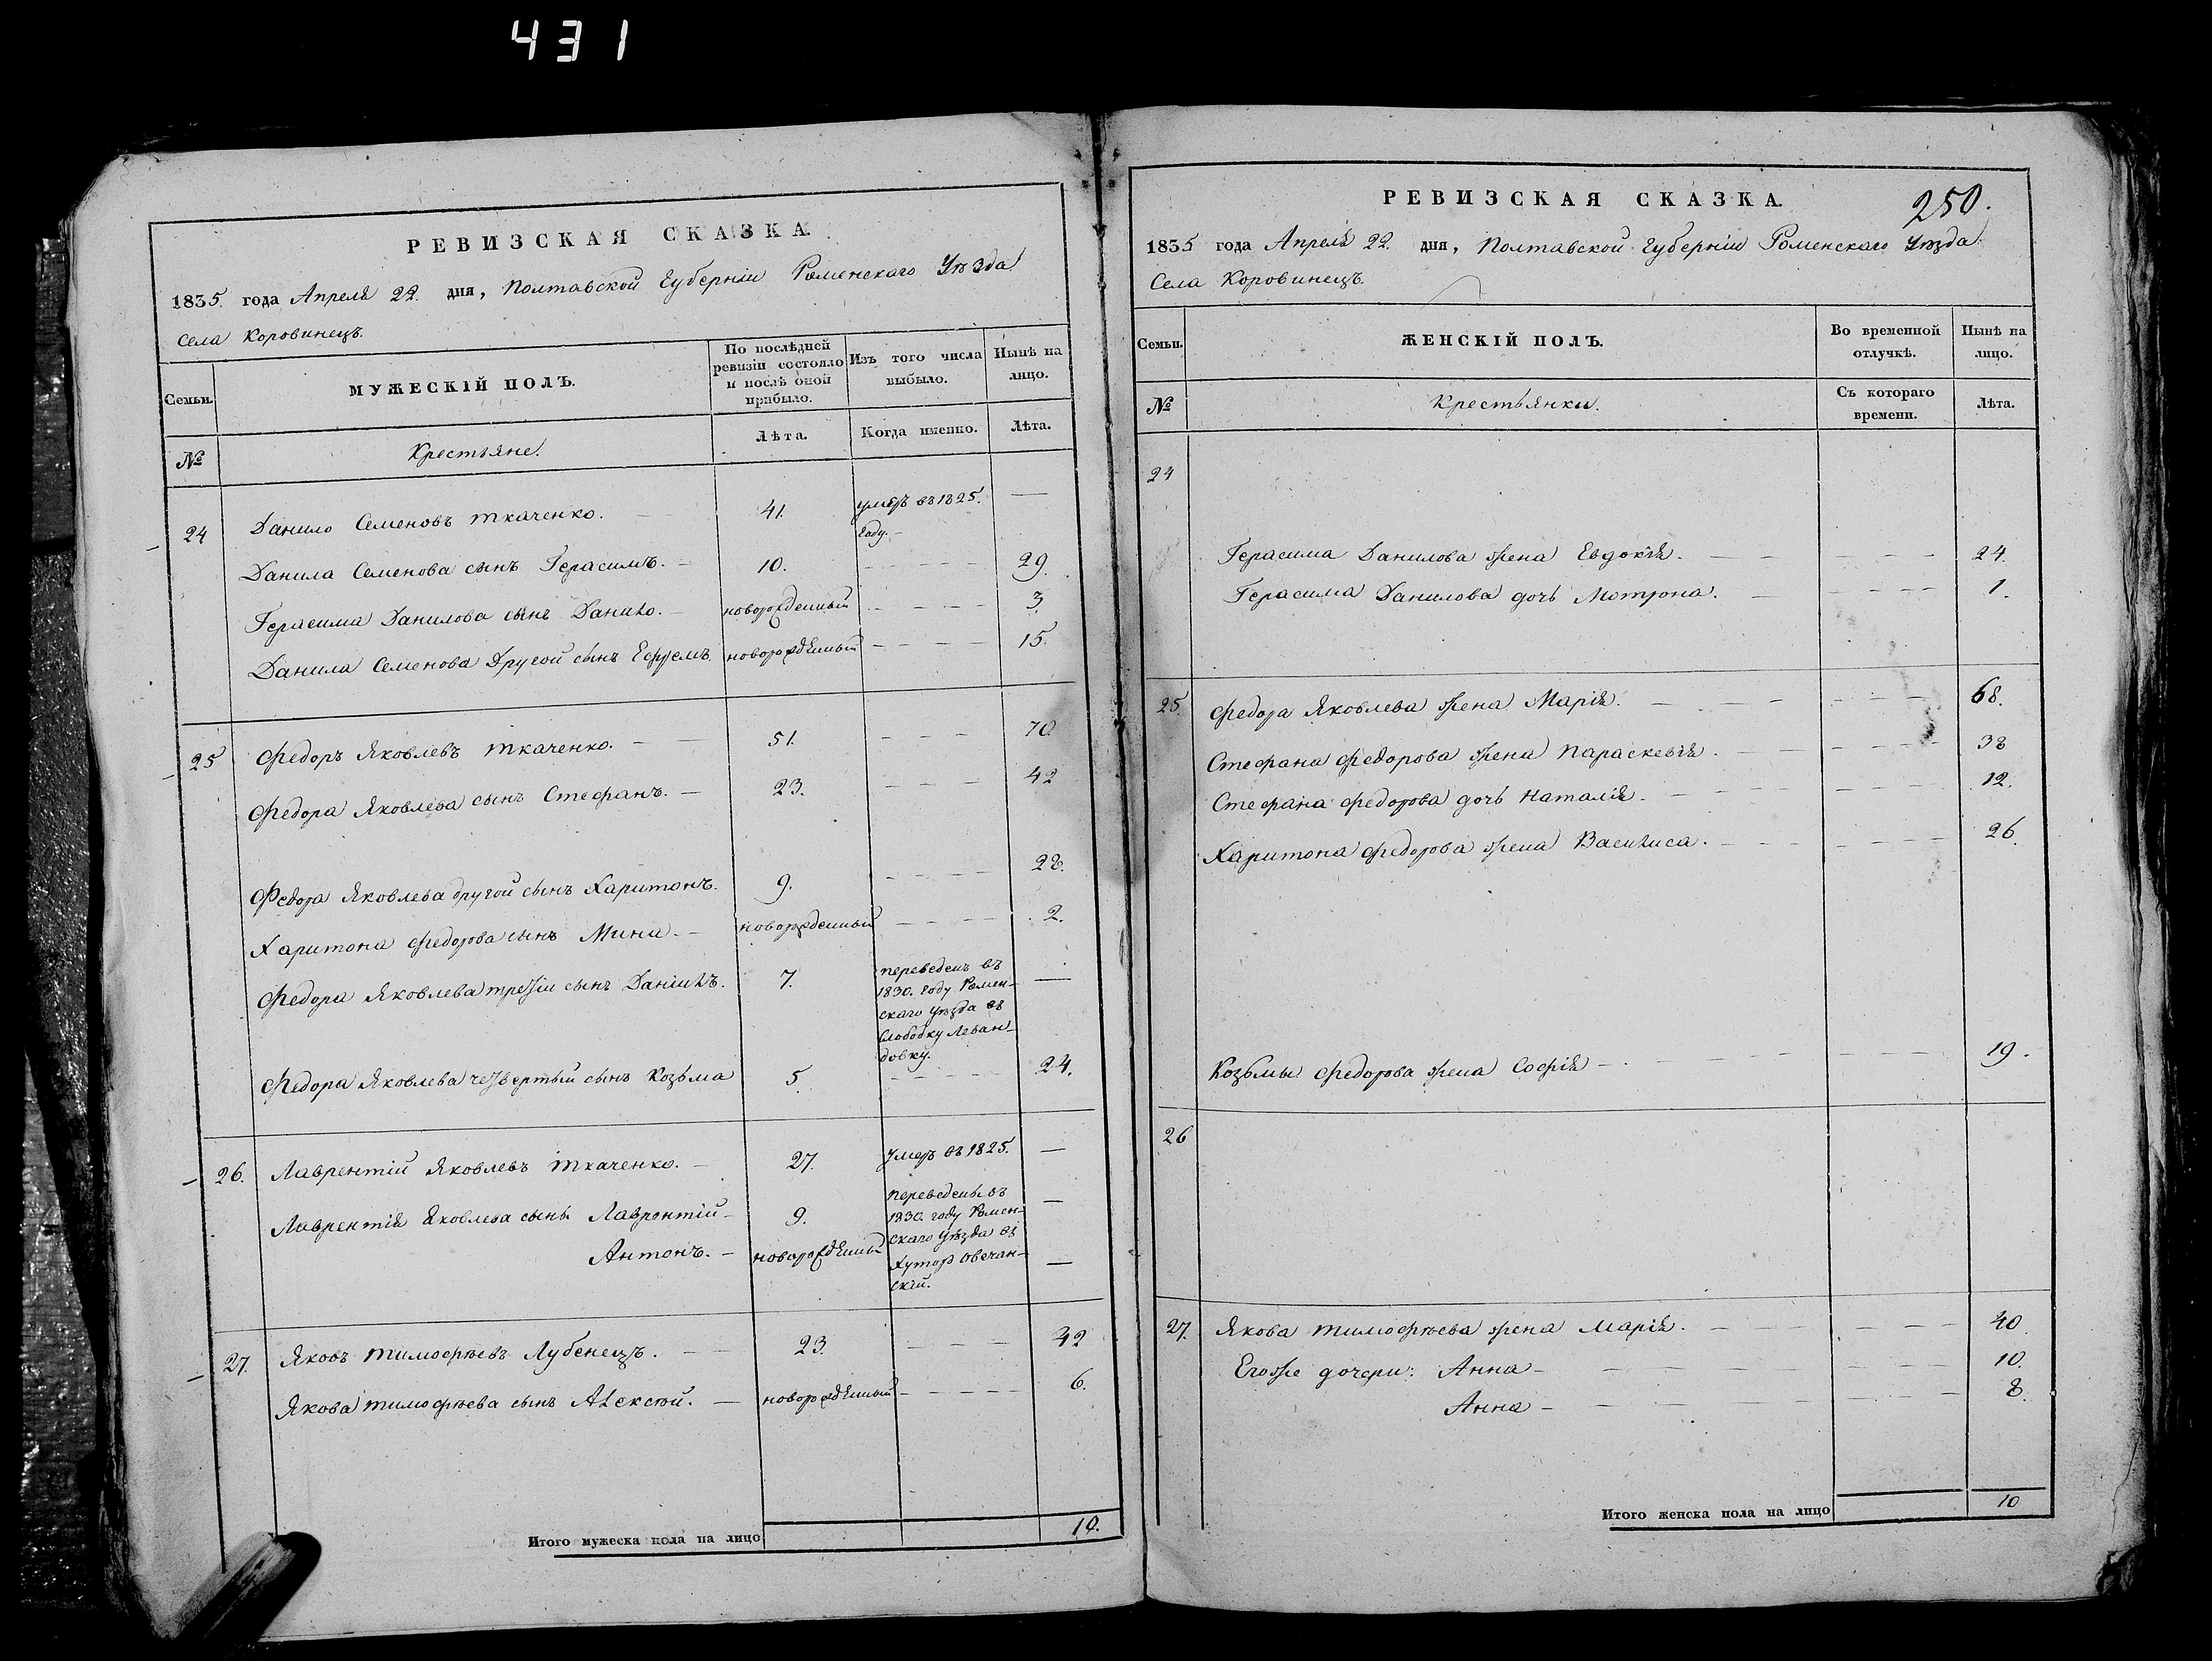 431
РЕВИЗСКАЯ СКАЗКА.
1835. года Апреля 22. дня, Полтавской Губерніи Роменскаго Уѣзда
Села Коровинецъ.
Семьи.
МУЖЕСКІЙ ПОЛЪ.
По послѣдней ревизіи состояло и послѣ оной прибыло.
Изъ того числа выбыло.
Нынѣ на лицо.
№
Крестьяне.
Лѣта.
Когда именно.
Лѣта.
24 Данило Семеновъ Ткаченко. 41. умеръ въ 1825. —
году.
Данила Семенова сынъ Герасимъ. 10. 29.
Герасима Данилова сынъ Данило. новорожденный 3.
Данила Семенова Другой сынъ Ефремъ. новорожденный 15.
25 Федоръ Яковлевъ Ткаченко. 51. 70
Федора Яковлева сынъ Стефанъ. 23. 42
Федора Яковлева другой сынъ Харитонъ. 9. 28.
Харитона Федорова сынъ Мина. новорожденный 2.
Федора Яковлева третій сынъ Даніилъ. 7. переведенъ въ —
1830. году Ромен-
скаго Уѣзда въ
Слободку Леван-
довку.
Федора Яковлева четвертый сынъ Козьма 5. 24.
26. Лаврентій Яковлевъ Ткаченко. 27. Умеръ въ 1825. —
Лаврентія Яковлева сынъ Лаврентій 9. переведены въ —
1830. году Ромен-
скаго Уѣзда въ
Антонъ. новорожденный Хуторъ Овечан- —
скій.
27. Яковъ Тимофѣевъ Лубенецъ. 23. 42
Якова Тимофѣева сынъ Алексѣй. новорожденный 6.
Итого мужеска пола на лицо 10.
250.
РЕВИЗСКАЯ СКАЗКА.
1835 года Апреля 22. дня, Полтавской Губерніи Роменскаго Уѣзда
Села Коровинецъ.
Семьи.
ЖЕНСКІЙ ПОЛЪ.
Во временной отлучкѣ.
Нынѣ на лицо.
№
Крестьянки.
Съ котораго времени.
Лѣта.
24
Герасима Данилова жена Евдокія. 24.
Герасима Данилова дочь Мотрона. 1.
25. Федора Яковлева жена Марія. 68.
Стефана Федорова жена Параскевія. 38
Стефана Федорова дочь Наталія. 12.
Харитона Федорова жена Василиса. 26.
Козьмы Федорова жена Софія 19.
26
27. Якова Тимофѣева жена Марія. 40.
Егоже дочери: Анна 10.
Анна 8.
Итого женска пола на лицо 10